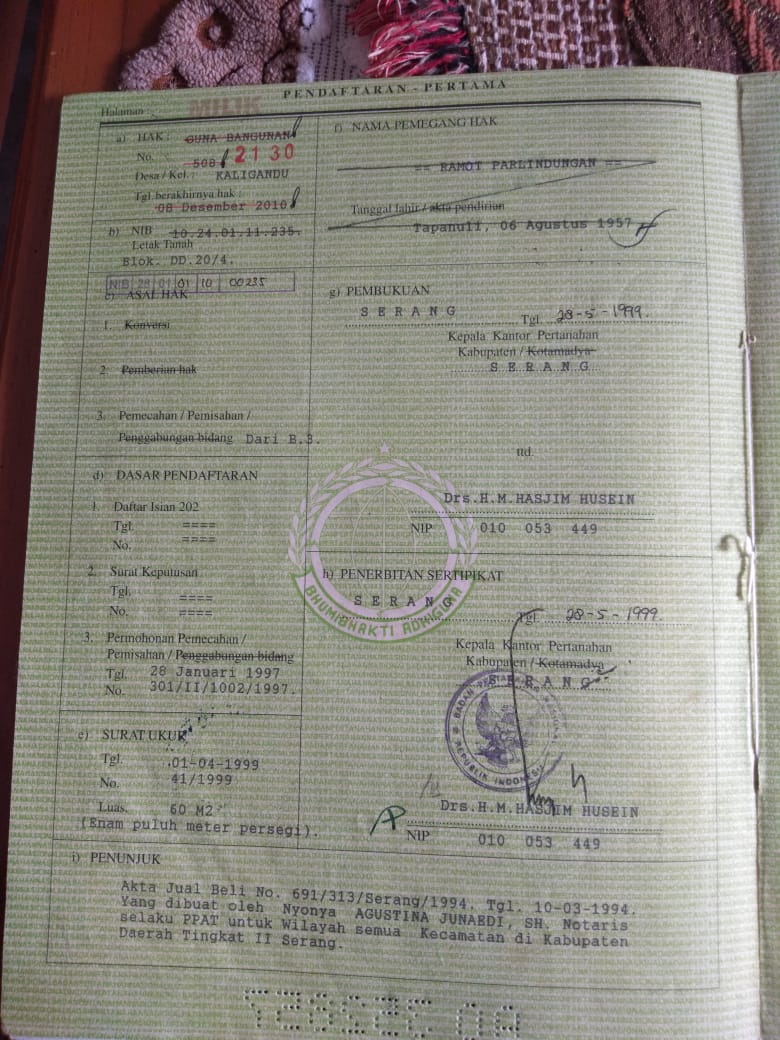 PENDAFTARAN - PERTAMA
Halaman :
MILIK
a) HAK : GUNA BANGUNAN
No. 508 2130
Desa / Kel. : KALIGANDU
Tgl berakhirnya hak :
08 Desember 2010
b) NIB 10.24.01.11.235.
Letak Tanah
Blok. DD.20/4.
NIB 28 01 01 10 00235
c) ASAL HAK
1. Konversi
2. Pemberian hak
3. Pemecahan / Pemisahan /
Penggabungan bidang Dari B.3.
d) DASAR PENDAFTARAN
1. Daftar Isian 202
Tgl. ====
No. ====
2. Surat Keputusan
Tgl. ====
No. ====
3. Permohonan Pemecahan /
Pemisahan / Penggabungan bidang
Tgl. 28 Januari 1997
No. 301/II/1002/1997.
e) SURAT UKUR
Tgl. 01-04-1999
No. 41/1999
Luas. 60 M2
(Enam puluh meter persegi).
f) NAMA PEMEGANG HAK
== RAMOT PARLINDUNGAN ==
Tanggal lahir / akta pendirian
Tapanuli, 06 Agustus 1957
g) PEMBUKUAN
SERANG
Tgl. 28-5-1999.
Kepala Kantor Pertanahan
Kabupaten / Kotamadya
SERANG
ttd.
Drs.H.M.HASJIM HUSEIN
NIP 010 053 449
h) PENERBITAN SERTIPIKAT
SERANG
Tgl. 28-5-1999.
Kepala Kantor Pertanahan
Kabupaten / Kotamadya
SERANG
BADAN PERTANAHAN NASIONAL
REPUBLIK INDONESIA
Drs.H.M.HASJIM HUSEIN
NIP 010 053 449
BHUMI BHAKTI ADHIGUNA
i) PENUNJUK
Akta Jual Beli No. 691/313/Serang/1994. Tgl. 10-03-1994.
Yang dibuat oleh Nyonya AGUSTINA JUNAEDI, SH. Notaris
selaku PPAT untuk Wilayah semua Kecamatan di Kabupaten
Daerah Tingkat II Serang.